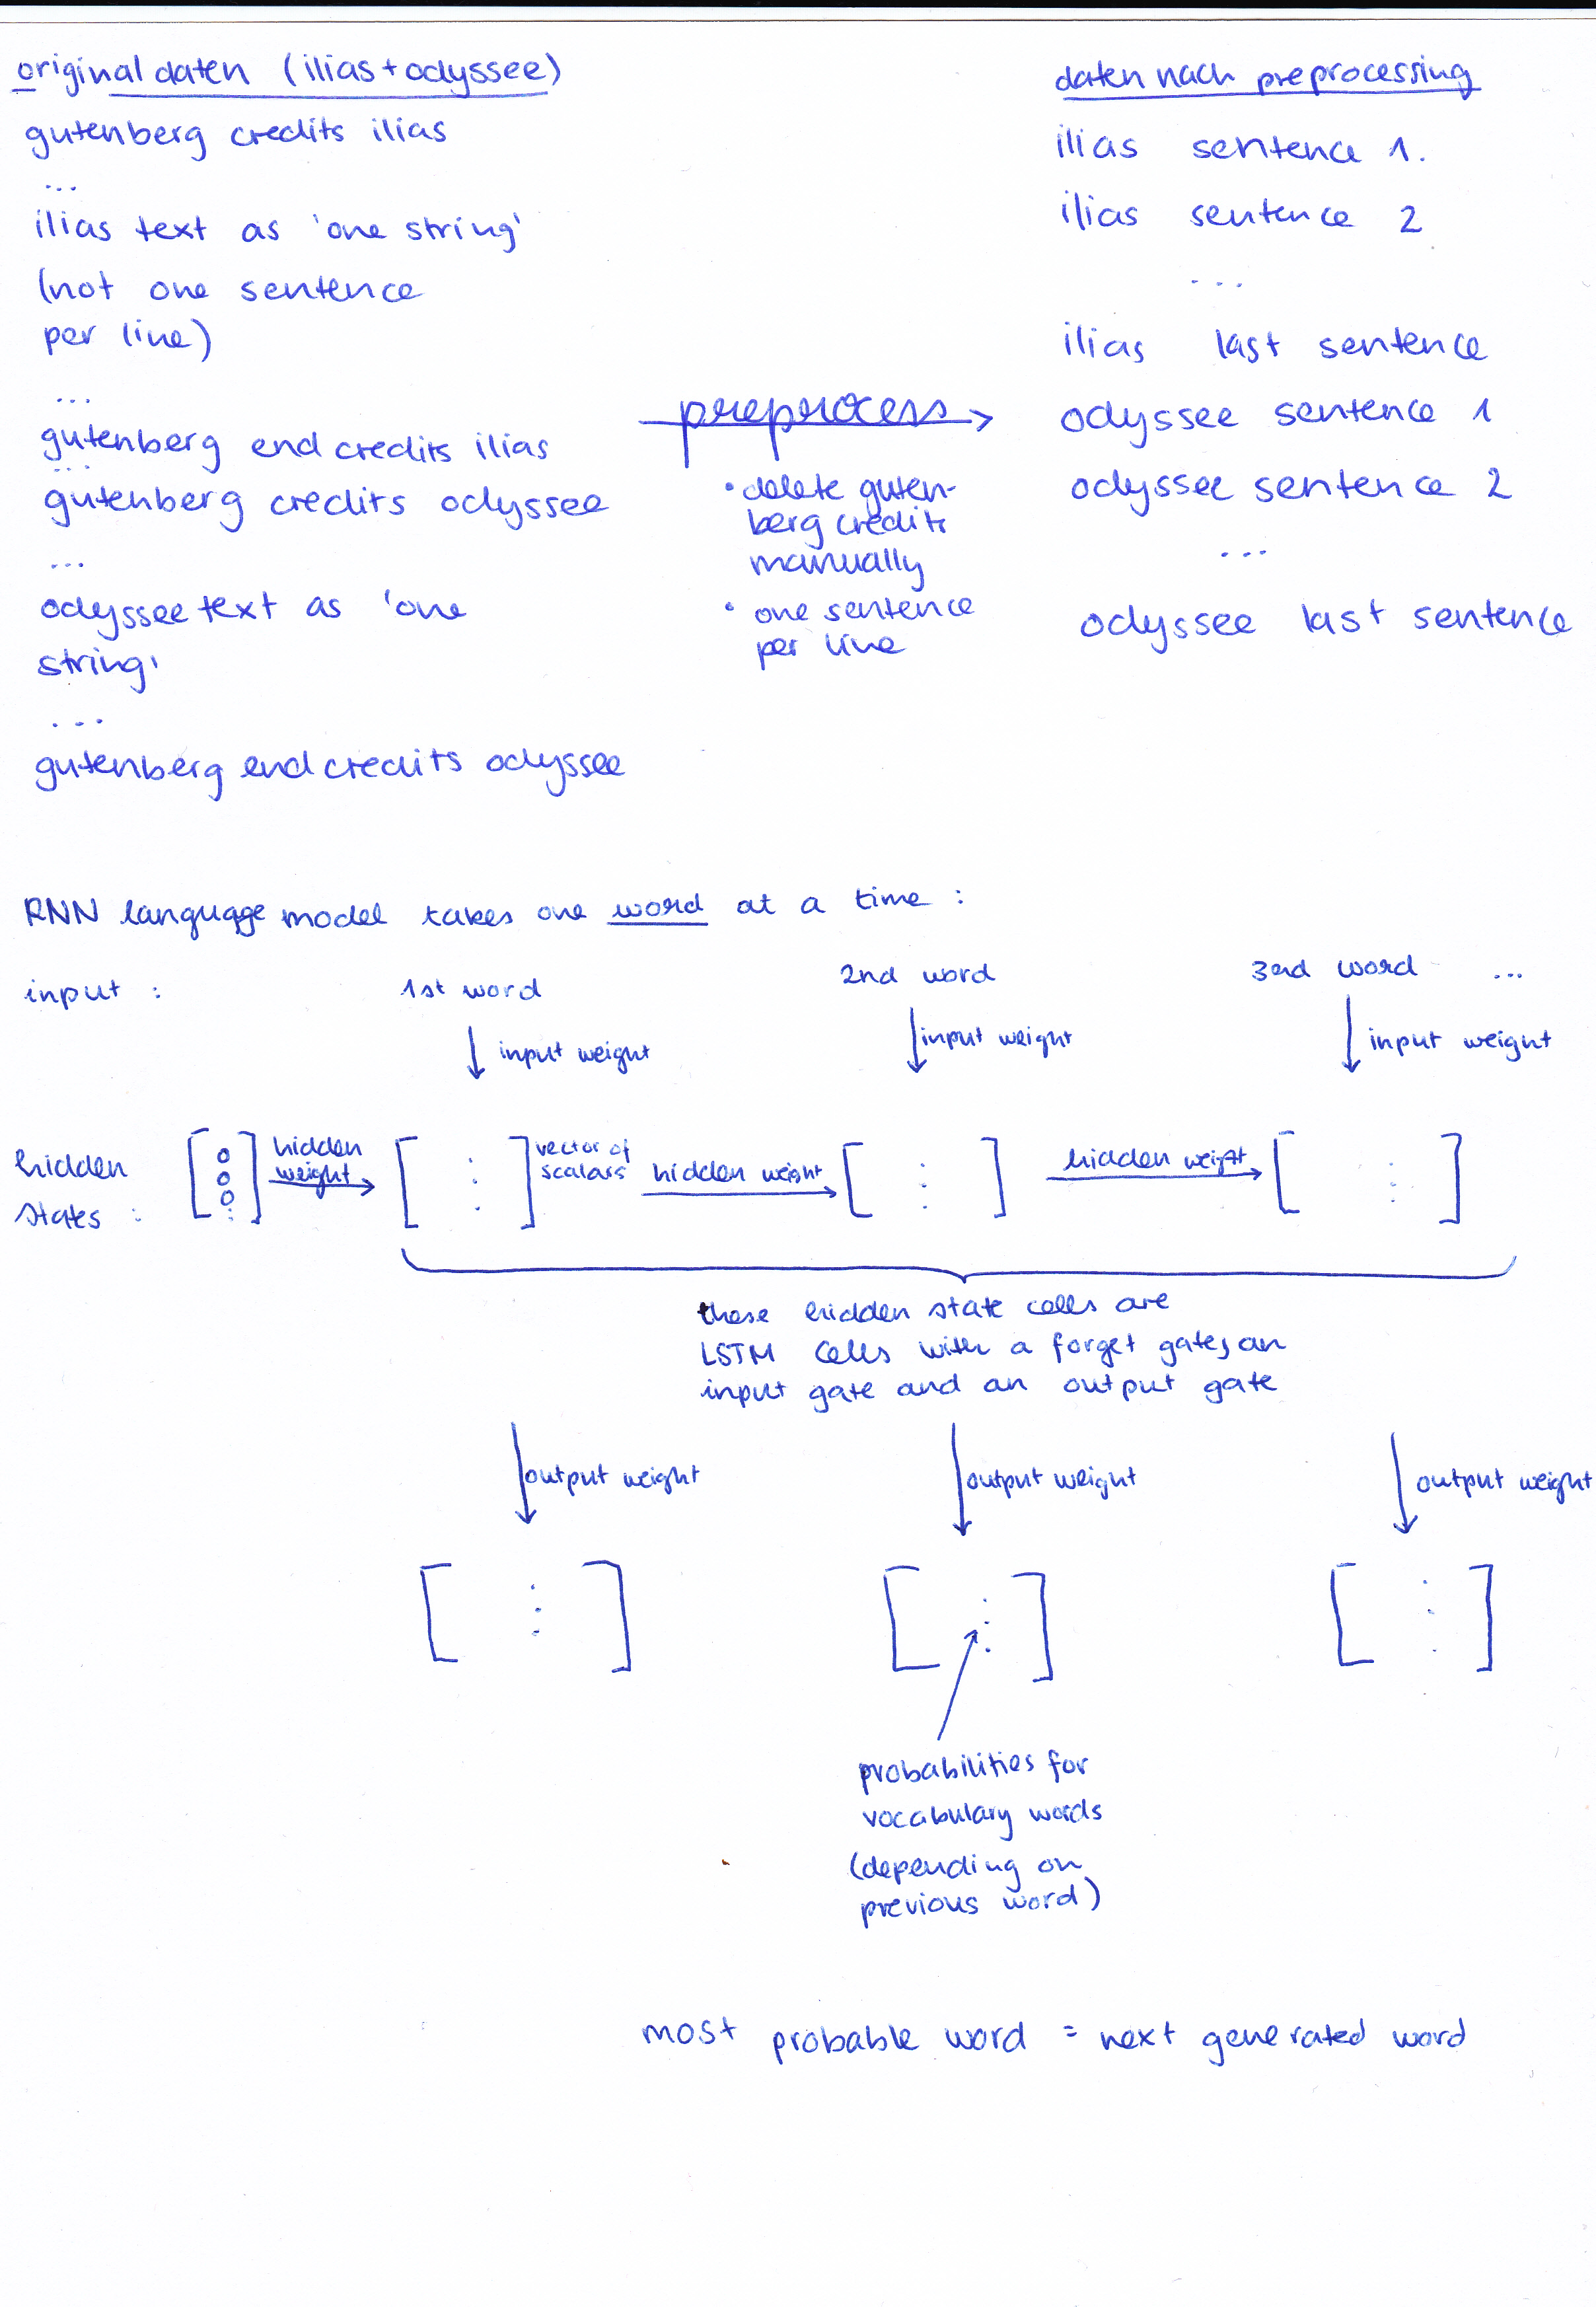 original daten (ilias + odyssee)
gutenberg credits ilias
...
ilias text as 'one string'
(not one sentence
per line)
...
gutenberg end credits ilias
...
gutenberg credits odyssee
...
odyssee text as 'one
string'
...
gutenberg end credits odyssee
preprocess
• delete guten-
berg credits
manually
• one sentence
per line
daten nach preprocessing
ilias sentence 1.
ilias sentence 2
...
ilias last sentence
odyssee sentence 1
odyssee sentence 2
...
odyssee last sentence
RNN language model takes one word at a time :
input : 1st word 2nd word 3rd word ...
input weight input weight input weight
hidden
states :
[ 0 0 0 ⋮ ] hidden
weight [ ⋮ ] vector of
scalars hidden weight [ ⋮ ] hidden weight [ ⋮ ]
these hidden state cells are
LSTM cells with a forget gates, an
input gate and an output gate
output weight output weight output weight
[ ⋮ ] [ ⋮ ] [ ⋮ ]
probabilities for
vocabulary words
(depending on
previous word)
most probable word = next generated word